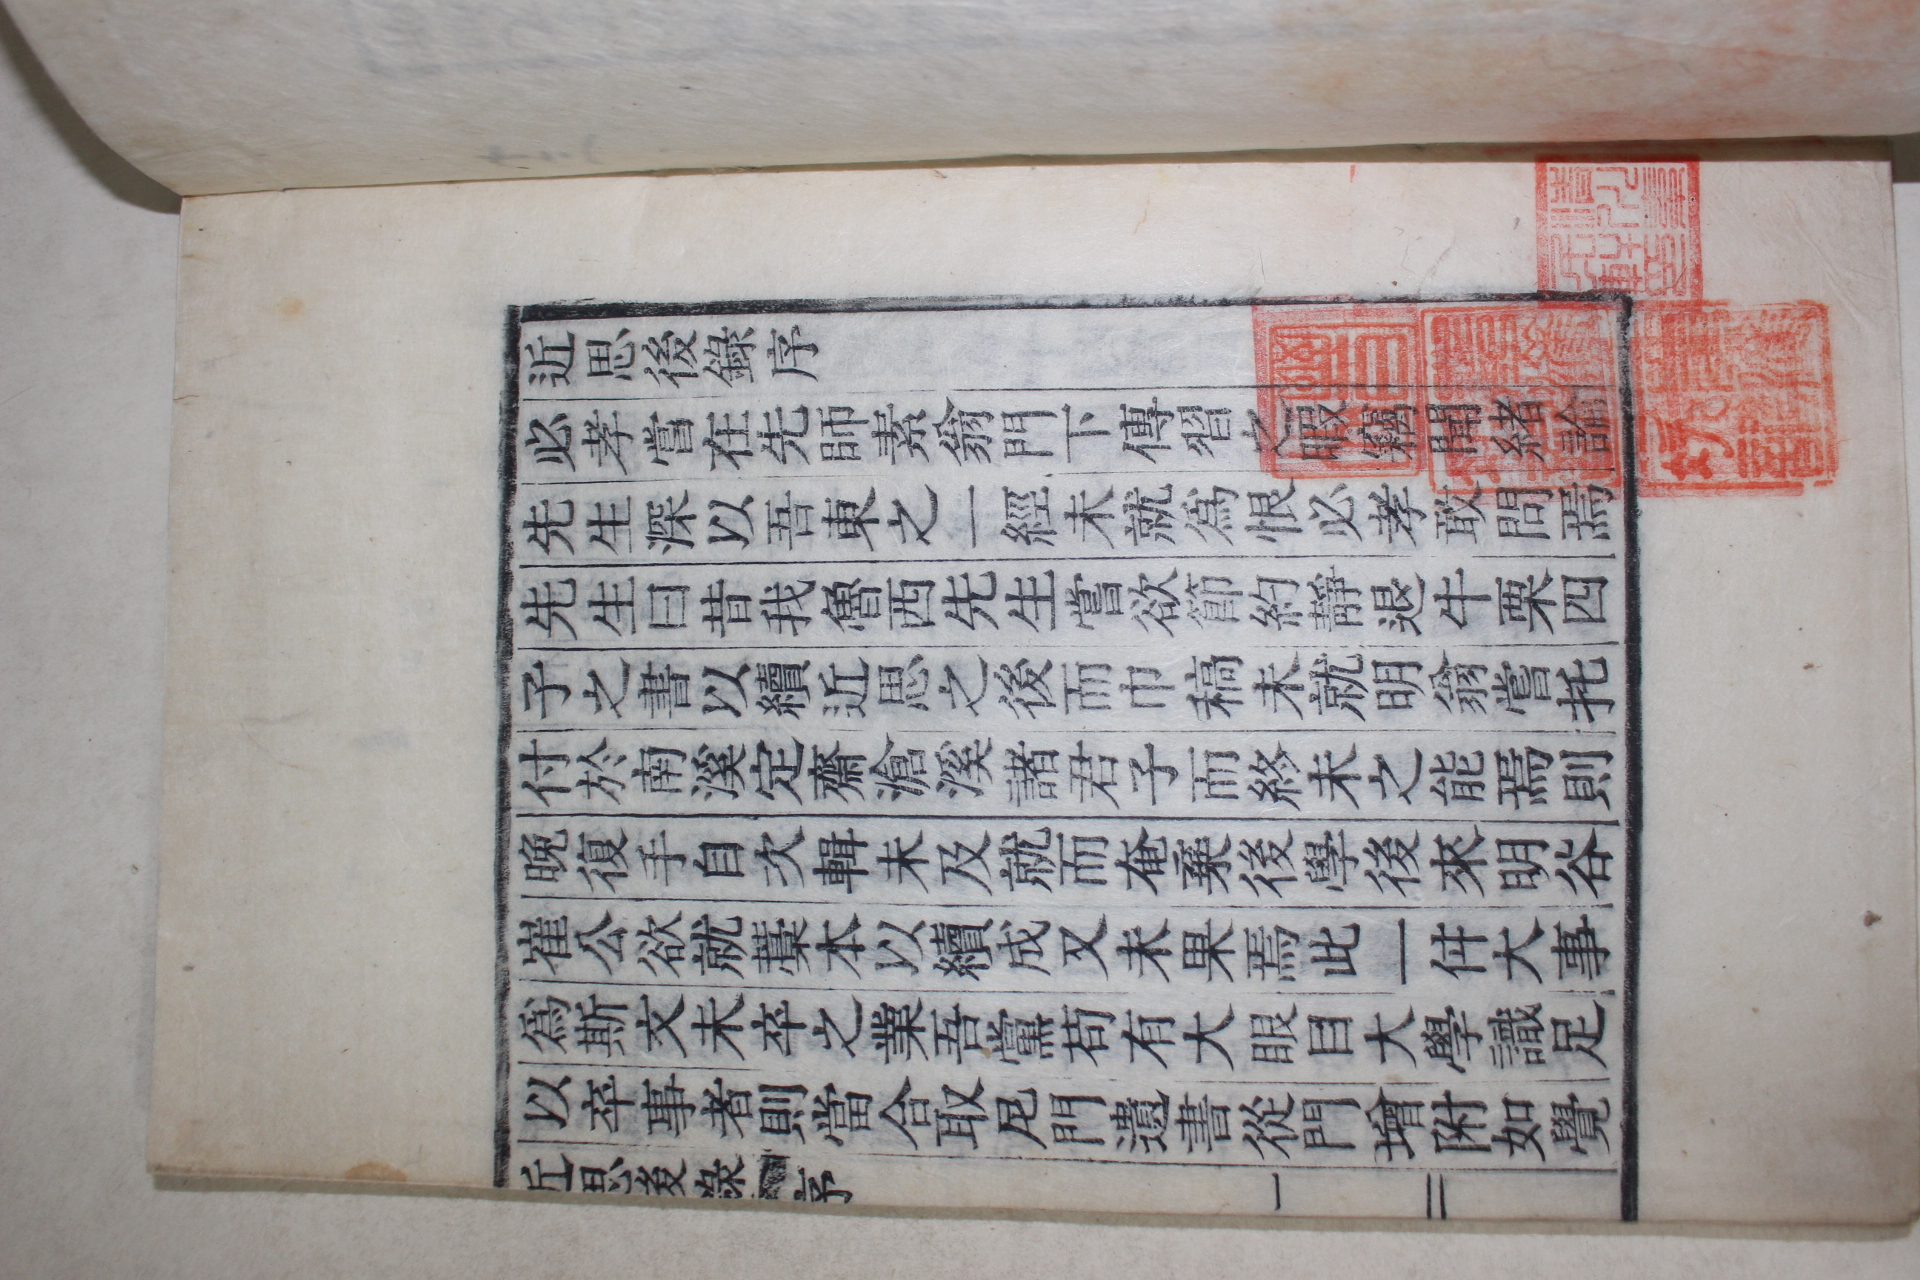 近思後錄序
必孝嘗在先師素翁門下傳習之暇竊聞緖論
先生深以吾東之一經未就爲恨必孝敢問焉
先生曰昔我魯西先生嘗欲節約靜退牛栗四
子之書以續近思之後而巾稿未就明翁嘗托
付於南溪定齋滄溪諸君子而終未之能焉則
晚復手自次輯未及就而奄棄後學後來明谷
崔公欲就藁本以續成又未果焉此一件大事
爲斯文未卒之業吾黨苟有大眼目大學識足
以卒事者則當合取尼門遺書從門增附如覺
近思後錄 序 一